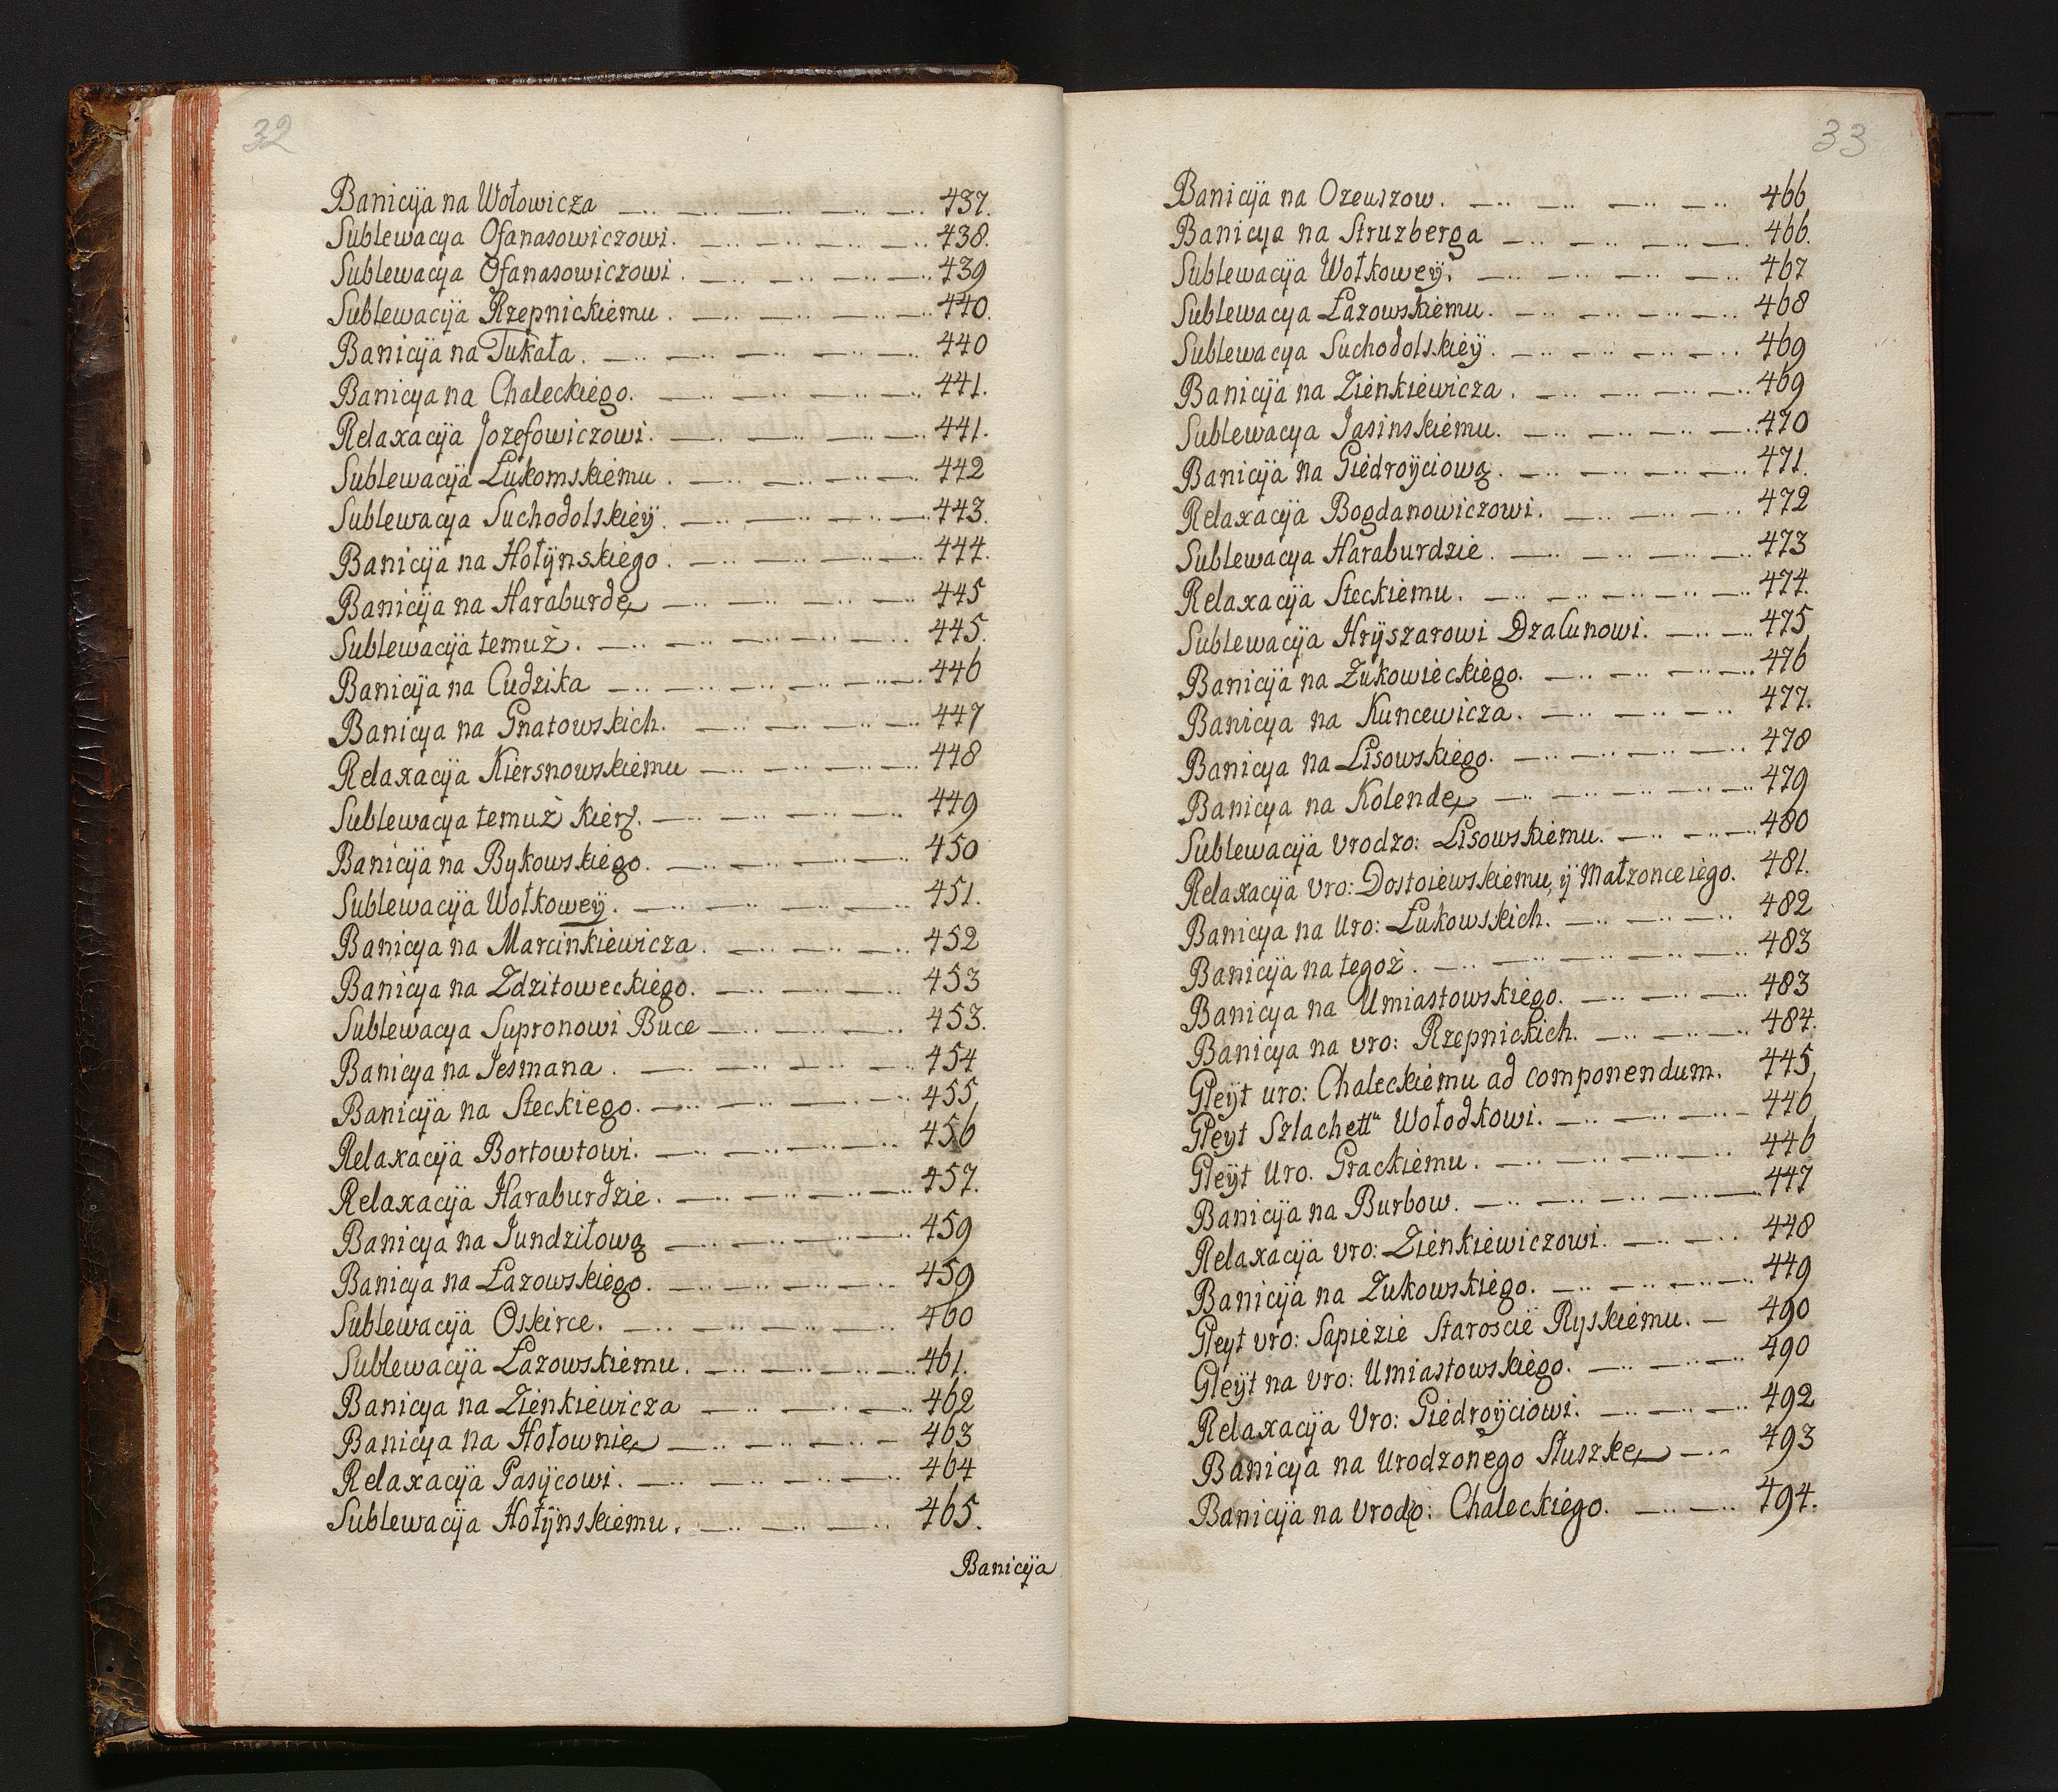 32
Banicÿa na Wołowicza 437.
Sublewacya Ofanasowiczowi. 438.
Sublewacya Ofanasowiczowi. 439
Sublewacÿa Rzepnickiemu. 440.
Banicÿa na Tukała. 440
Banicya na Chaleckiego. 441.
Relaxacÿa Jozefowiczowi. 441.
Sublewacÿa Łukomskiemu. 442
Sublewacya Suchodolskieÿ. 443.
Banicÿa na Hołÿnskiego. 444.
Banicÿa na Haraburdę 445
Sublewacÿa temuż. 445.
Banicÿa na Cudzika 446
Banicya na Gnatowskich. 447
Relaxacÿa Kiersnowskiemu 448
Sublewacya temuż Kiers. 449
Banicÿa na Bykowskiego. 450
Sublewacÿa Wołkoweÿ. 451.
Banicya na Marcinkiewicza. 452
Banicya na Zdzitoweckiego. 453
Sublewacya Supronowi Buce 453.
Banicya na Jesmana. 454
Banicÿa na Steckiego. 455
Relaxacÿa Bortowtowi. 456
Relaxacÿa Haraburdzie. 457.
Banicya na Jundziłową 459
Banicya na Łazowskiego. 459
Sublewacÿa Oskirce. 460
Sublewacÿa Łazowskiemu. 461.
Banicya na Zienkiewicza 462
Banicya na Hołownię 463
Relaxacÿa Pasÿcowi. 464
Sublewacÿa Hołÿnskiemu. 465.
Banicÿa
33
Banicÿa na Ozeuszow. 466
Banicya na Struzberga 466.
Sublewacÿa Wołkoweÿ. 467
Sublewacya Łazowskiemu. 468
Sublewacya Suchodolskieÿ. 469
Banicÿa na Zienkiewicza. 469
Sublewacya Jasinskiemu. 470
Banicÿa na Giedroÿciową. 471.
Relaxacÿa Bogdanowiczowi. 472
Sublewacya Haraburdzie. 473
Relaxacÿa Steckiemu. 474.
Sublewacÿa Hrÿszarowi Dzalunowi. 475
Banicÿa na Żukowieckiego. 476
Banicya na Kuncewicza. 477.
Banicya na Lisowskiego. 478
Banicya na Kolendę 479
Sublewacÿa Vrodzo: Lisowskiemu. 480
Relaxacÿa Vro: Dostoiewskiemu, ÿ Małzonce iego. 481.
Banicya na Uro: Łukowskich. 482
Banicÿa na tegoż. 483
Banicya na Umiastowskiego. 483
Banicya na vro: Rzepnickich. 484.
Gleÿt uro: Chaleckiemu ad componendum. 445
Gleyt Szlachett<sup>u</sup> Wołodkowi. 446
Gleÿt Uro. Grackiemu. 446
Banicÿa na Burbow. 447
Relaxacÿa vro: Zienkiewiczowi. 448
Banicÿa na Zukowskiego. 449
Gleyt vro: Sapiezie Staroscie Ryskiemu. 490
Gleÿt na vro: Umiastowskiego. 490
Relaxacÿa Vro: Giedroÿciowi. 492
Banicya na Urodzonego Słuszkę 493
Banicÿa na Vrodzo: Chaleckiego. 494.